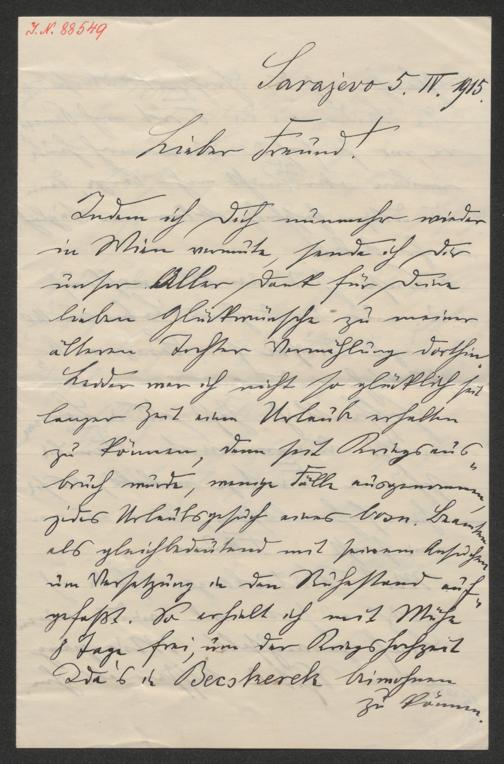 J.N. 88549
Sarajevo 5. IV. 1915.
Lieber Freund!
Indem ich Dich nunmehr wieder
in Wien vermute, sende ich Dir
unser Aller Dank für Deine
lieben Glückwünsche zu meiner
älteren Tochter Vermählung dorthin.
Leider war ich nicht so glücklich seit
langer Zeit einen Urlaub erhalten
zu können, denn seit Kriegsaus-
bruch wurde, wenige Fälle ausgenommen,
jedes Urlaubsgesuch eines bosn. Beamten
als gleichbedeutend mit seinem Ansuchen
um Versetzung in den Ruhestand auf-
gefaßt. So erhielt ich mit Mühe
8 Tage frei, um der Kriegshochzeit
Ida's in Becskerek beiwohnen
zu können.